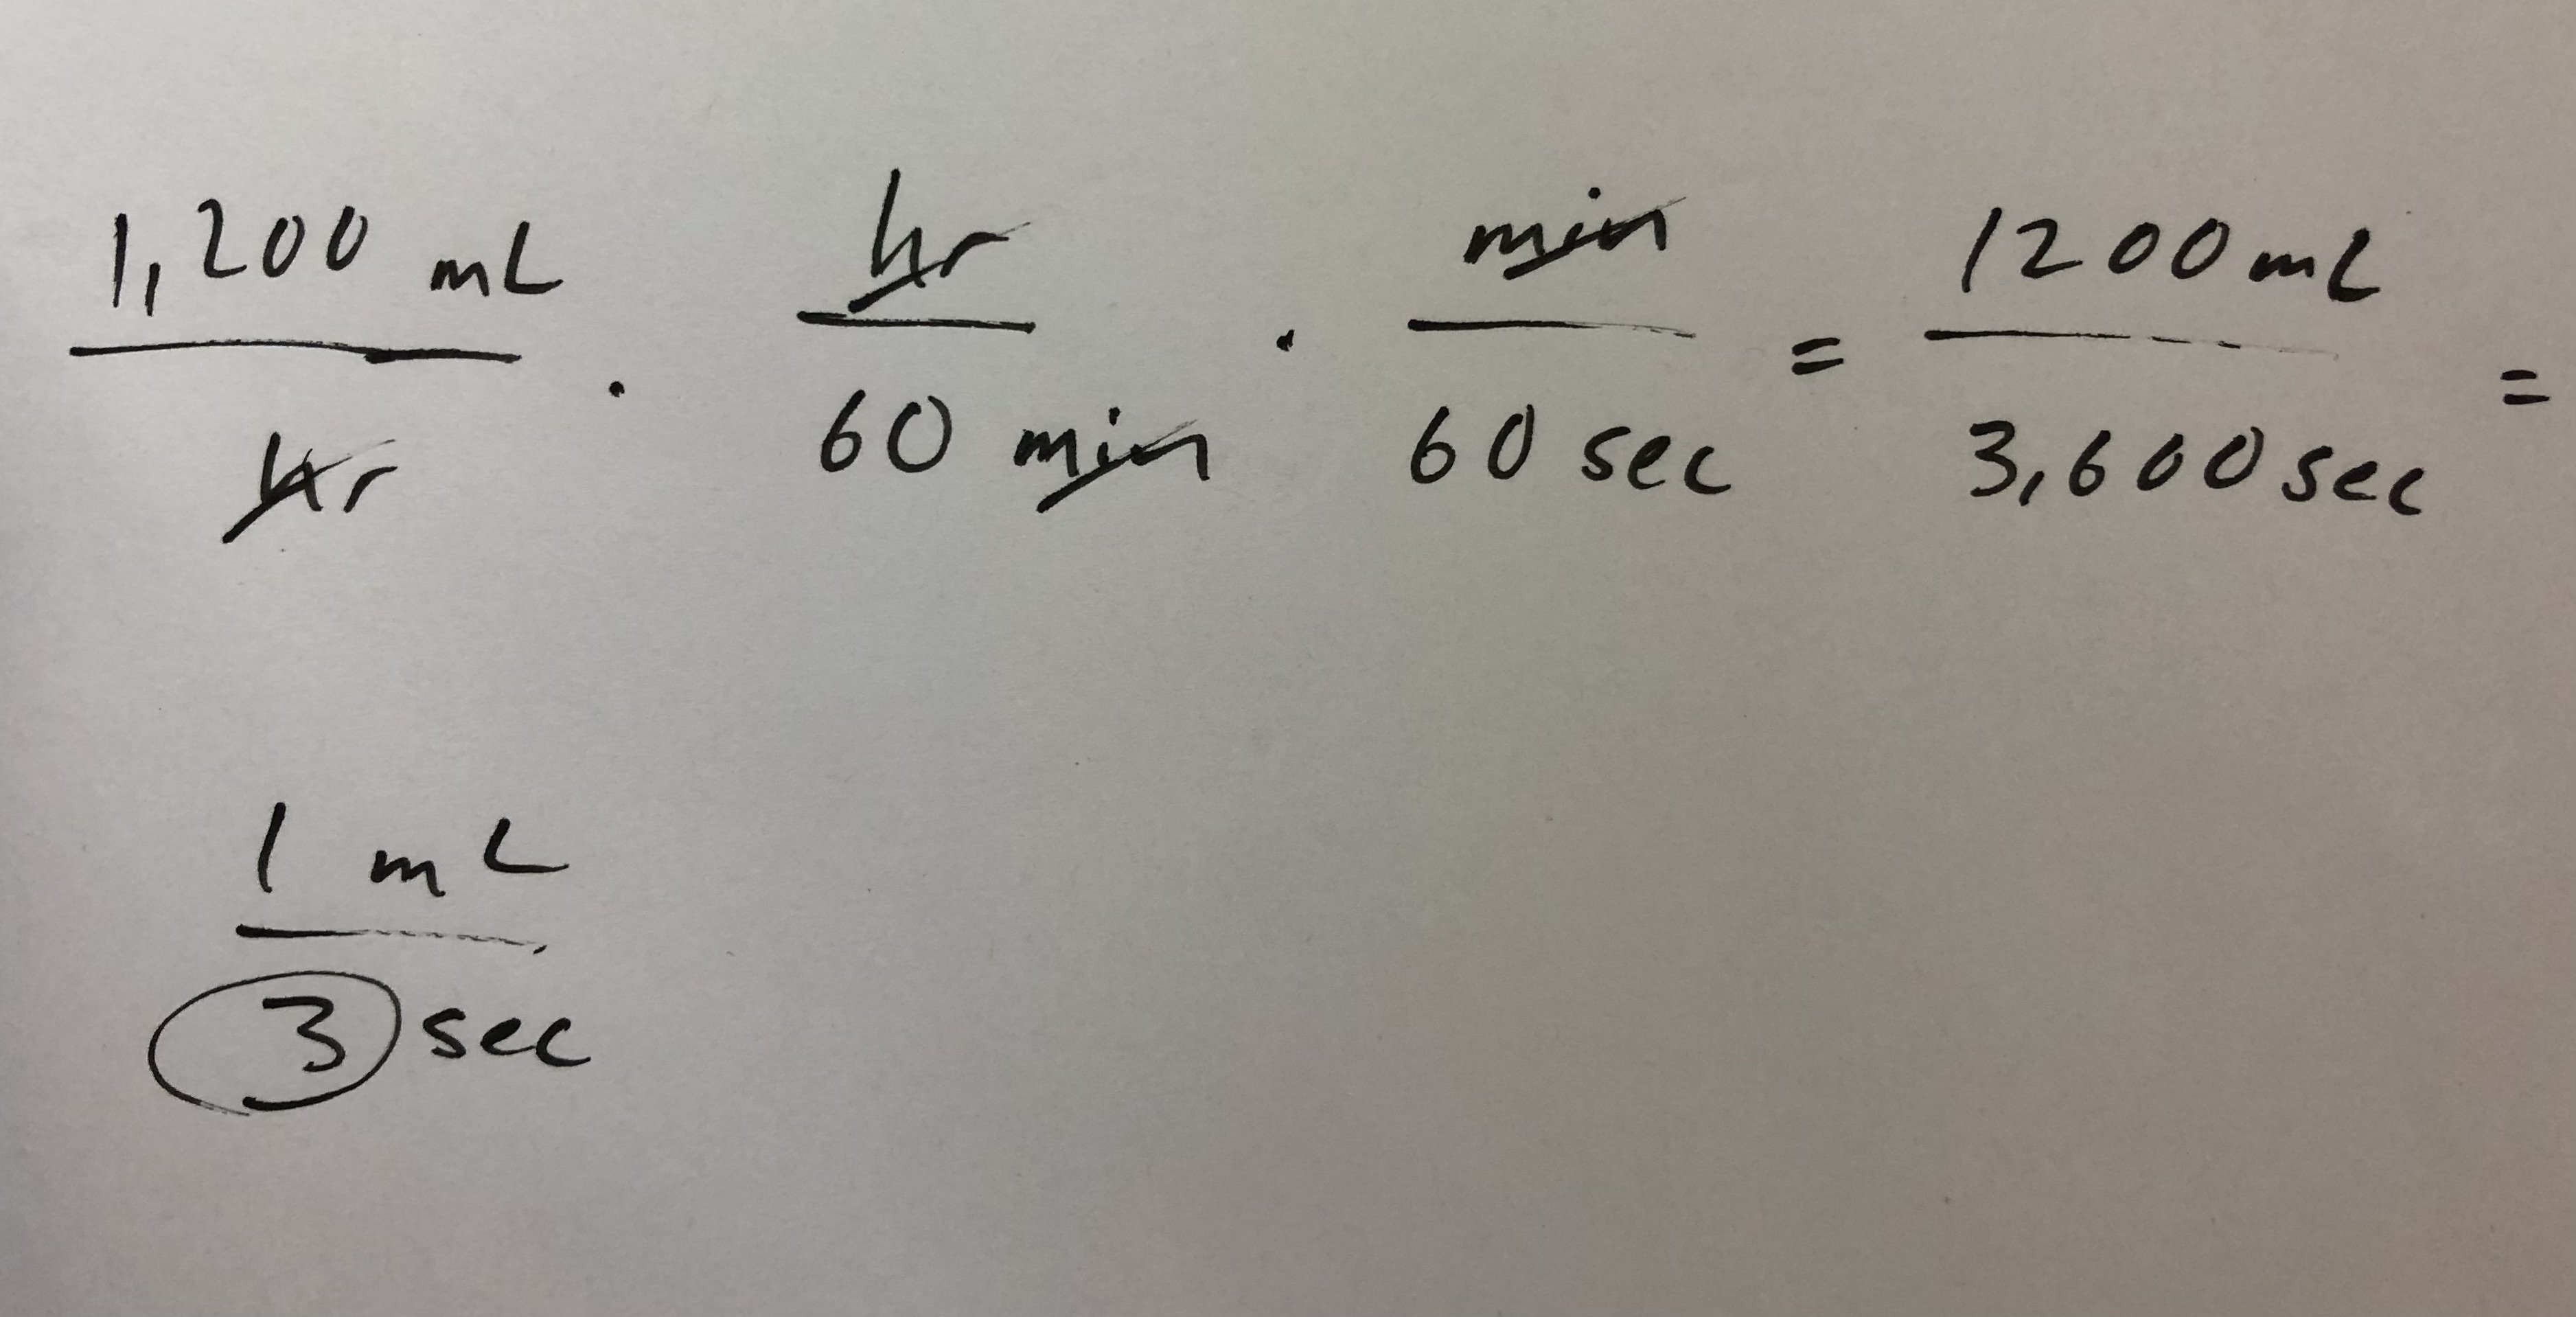 1,200 mL / hr · hr / 60 min · min / 60 sec = 1200 mL / 3,600 sec =
1 mL / 3 sec